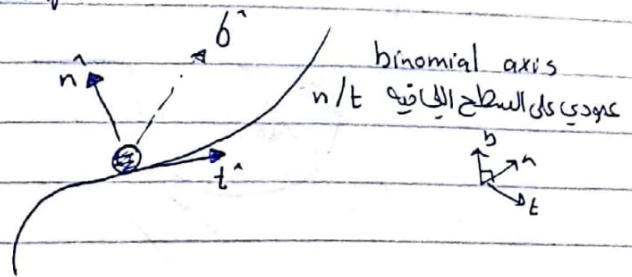 b^
n^
t^
binomial axis
عمودي على السطح الي فيه n/t
b
n
t